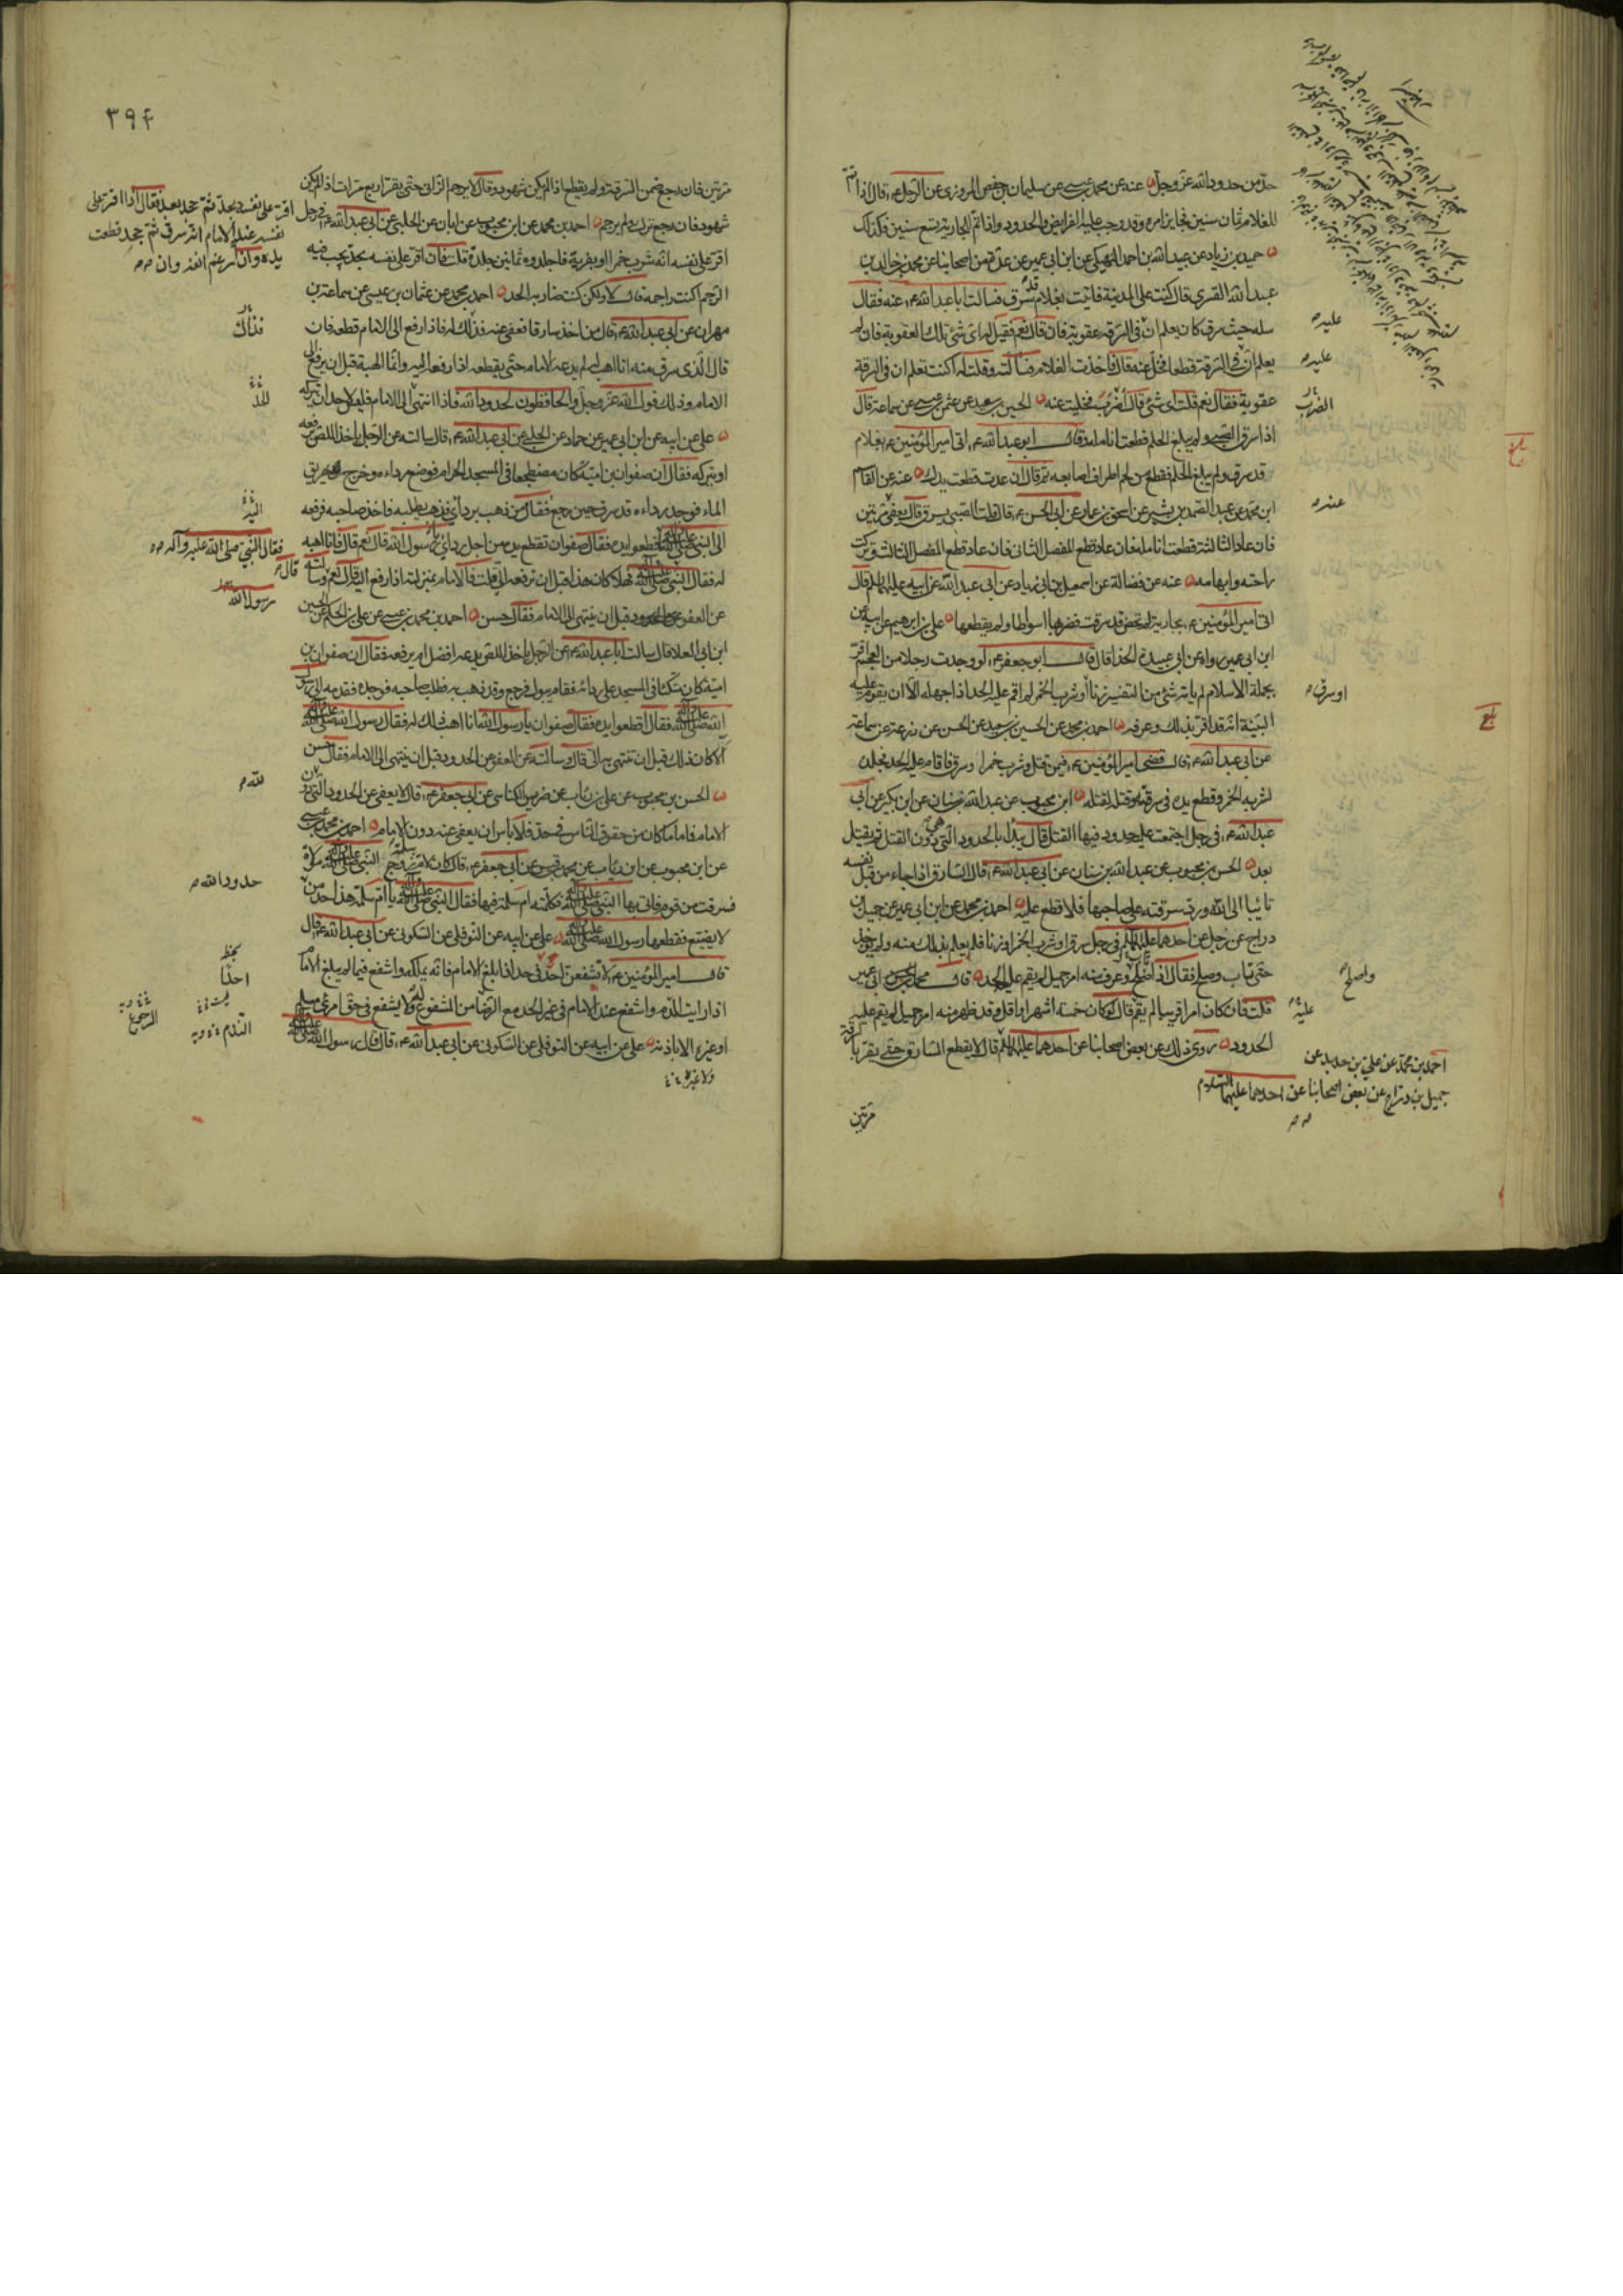 حدّ من حدود الله عزّ وجلّ عنه عن محمد بن عيسى عن سليمان بن حفص المروزى عن الرّجل ع قال اذا تمّ
للغلام ثمان سنين فجايز امره وقد وجب عليه الفرايض والحدود واذا تمّ للجارية تسع سنين فكذلك
حميد بن زياد عن عبيد الله بن احمد النهيكى عن ابن ابى عمير عن عدّة من اصحابنا عن محمد بن خالد بن
عبد الله القسرى قال كنت على المدينة فاتيت بغلام قد سرق فسالت ابا عبد الله ع عنه فقال
سله حيث سرق كان يعلم انّ فى السّرقة عقوبة فان قال نعم فقيل له اىّ شئ تلك العقوبة فان لم
يعلم انّ فى السّرقة قطعا فخلّ عنه قال فاخذت الغلام فسالته وقلت له اكنت تعلم ان فى السرقة
عقوبة فقال نعم قلت اى شئ قال اُضرَب فخلّيت عنه الحسين بن سعيد عن عثمن بن عيسى عن سماعة قال
اذا سرق الصّبى ولم يبلغ الحلم قطعت انامله وقال ابو عبد الله ع اتى امير المؤمنين ع بغلام
قد سرق ولم يبلغ الحلم فقطع من لحم اطراف اصابعه ثمّ قال ان عدت قطعت يدك عنه عن القاسم
ابن محمّد عن عبد الصّمد بن بشير عن اسحق بن عمار عن ابى الحسن ع قال قلت الصّبى يسرق قال يعفى مرّتين
فان عاد الثالثة قطعت انامله فان عاد قطع المفصل الثانى فان عاد قطع المفصل الثالث وتركت
راحته وابهامه عنه عن فضالة عن اسمعيل بن ابى زياد عن ابى عبد الله عن ابيه عليهما السلم قال
اتى امير المؤمنين ع بجارية لم تحض قد سرقت فضربها اسواطا ولم يقطعها على بن ابرهيم عن ابيه عن
ابن ابى عمير رواه عن ابى عبيدة الحذا قال قال ابو جعفر ع لو وجدت رجلا من العجم اقرّ
بجملة الاسلام لم ياته شئ من التفسير زنا او شرب الخمر لم اقم عليه الحد اذا جهله الّا ان يقوم عليه
البيّنة انّه قد اقرّ بذلك وعرفه احمد بن محمد عن الحسين بن سعيد عن الحسن عن زرعة عن سماعة
عن ابى عبد الله ع قال قضى امير المؤمنين ع فيمن قتل وشرب خمرا وسرق فاقام عليه الحد فجلده
لشربه الخمر وقطع يده فى سرقته وقتله لقتله ابن محبوب عن عبد الله بن سنان عن ابن بكير عن ابى
عبد الله ع فى رجل اجتمعت عليه حدود فيها القتل قال يبدأ بالحدود الّتى هى دون القتل ثم يقتل
بعد الحسن بن محبوب عن عبد الله بن سنان عن ابى عبد الله ع قال السّارق اذا جاء من قبل نفسه
تائبا الى الله ورد سرقته على صاحبها فلا قطع عليه احمد بن محمد عن ابن ابى عمير عن جميل بن
دراج عن رجل عن احدهما عليهما السلم فى رجل سرق او شرب الخمر او زنا فلم يعلم بذلك منه ولم يؤخذ
حتى تاب وصلح فقال اذا صلح وعرف منه امر جميل لم يقم عليه الحد قال محمد بن ابى عمير
قلت فان كان امرا قريبا لم يقم قال لو كان خمسة اشهر او اقل وقد ظهر منه امر جميل لم يقم عليه
الحدود روى ذلك عن بعض اصحابنا عن احدهما عليهما السلم قال لا يقطع السّارق حتى يقرّ بالسرقة
مرّتين
عليه
عليه
الضرب
عنه
او سرق
واصلح
عليه
احمد بن محمّد عن علىّ بن حديد عن
جميل بن درّاج عن بعض اصحابنا عن احدهما عليهما السّلام
٣٩٤
مرّتين فان رجع ضمن السّرقة ولم يقطع اذا لم يكن شهود وقال لا يرجم الزّانى حتّى يقرّ اربع مرّات اذا لم يكن
شهود فان رجع ترك ولم يرجم احمد بن محمد عن ابن محبوب عن ابان عن الحلبى عن ابى عبد الله ع فى رجل
اقرّ على نفسه انّه شرب خمرا او بفرية فاجلدوه ثمانين جلدة قلت فان اقرّ على نفسه بحدّ يجب فيه
الرّجم اكنت راجمه قال لا ولكن كنت ضاربه الحد احمد بن محمد عن عثمان بن عيسى عن سماعة بن
مهران عن ابى عبد الله ع قال من اخذ سارقا فعفى عنه فذلك له فاذا رفع الى الامام قطعه فان
قال الّذى سرق منه انا اهب له لم يدعه الامام حتّى يقطعه اذا رفعه اليه وانّما الهبة قبل ان يرفع الى
الامام وذلك قول الله عزّ وجلّ والحافظون لحدود الله فاذا انتهى الى الامام فليس لاحد ان يتركه
على عن ابيه عن ابن ابى عمير عن حماد عن الحلبى عن ابى عبد الله ع قال سالته عن الرّجل ياخذ اللص يرفعه
او يتركه فقال ان صفوان بن امية كان مضطجعا فى المسجد الحرام فوضع رداءه وخرج يهريق
الماء فوجد رداءه قد سرق حين رجع فقال من ذهب بردائى فذهب يطلبه فاخذ صاحبه فرفعه
الى النبى صلى الله عليه وآله فقال اقطعوا يده فقال صفوان تقطع يده من اجل ردائى يا رسول الله قال نعم قال فانا اهبه
له فقال النبى صلى الله عليه وآله فهلا كان هذا قبل ان ترفعه الىّ قلت فالامام بمنزلته اذا رفع اليه قال نعم وسالته
عن العفو عن الحدود قبل ان ينتهى الى الامام فقال حسن احمد بن محمد بن عيسى عن على بن الحكم عن الحسين
ابن ابى العلا قال سالت ابا عبد الله ع عن الرّجل ياخذ اللص يدعه افضل ام يرفعه فقال ان صفوان بن
امية كان متّكئا فى المسجد على ردائه فقام يبول فرجع وقد ذهب به فطلب صاحبه فوجده فقدمه الى رسول
الله صلى الله عليه وآله فقال اقطعوا يده فقال صفوان يا رسول الله انا اهب ذلك له فقال رسول الله صلى الله عليه وآله
الا كان ذلك قبل ان تنتهى به الىّ قال وسالته عن العفو عن الحدود قبل ان ينتهى الى الامام فقال حسن
الحسن بن محبوب عن على بن رئاب عن ضريس الكناسى عن ابى جعفر ع قال لا يعفى عن الحدود الّتى دون
الامام فاما ما كان من حقوق النّاس فى حدّ فلا باس ان يعفى عنه دون الامام احمد بن محمد بن عيسى
عن ابن محبوب عن ابن رئاب عن محمد بن قيس عن ابى جعفر ع قال كان لامّ سلمة زوج النّبى صلى الله عليه وآله امة
فسرقت من قوم فاتى بها النبى صلى الله عليه وآله فكلّمته ام سلمة فيها فقال النبى صلى الله عليه وآله يا امّ سلمة هذا حد من
لا يضيّع فقطعها رسول الله صلى الله عليه وآله على عن ابيه عن النوفلى عن السّكونى عن ابى عبد الله ع قال
قال امير المؤمنين ع لا تشفعن احد فى حد اذا بلغ الامام فانّه يملكه واشفع فيما لم يبلغ الامام
اذا رايت النّدم واشفع عند الامام فى غير الحد مع الرّضا من المشفوع له ولا يشفع فى حقّ امرئ مسلم
او غيره الا باذنه على عن ابيه عن النوفلى عن السّكونى عن ابى عبد الله ع قال قال رسول الله صلى الله عليه وآله
ولا غيره
اقرّ على نفسه بحدّ ثمّ جحد بعد فقال اذا اقرّ على
نفسه عند الامام انّه سرق ثمّ جحد قطعت
يده وان رغم انفه وان
فذاك
للحدّ
اليه
فقال النّبىّ صلّى الله عليه وآله
قال
رسول الله
لله
حدود الله
احدا
الندم
الرجوع